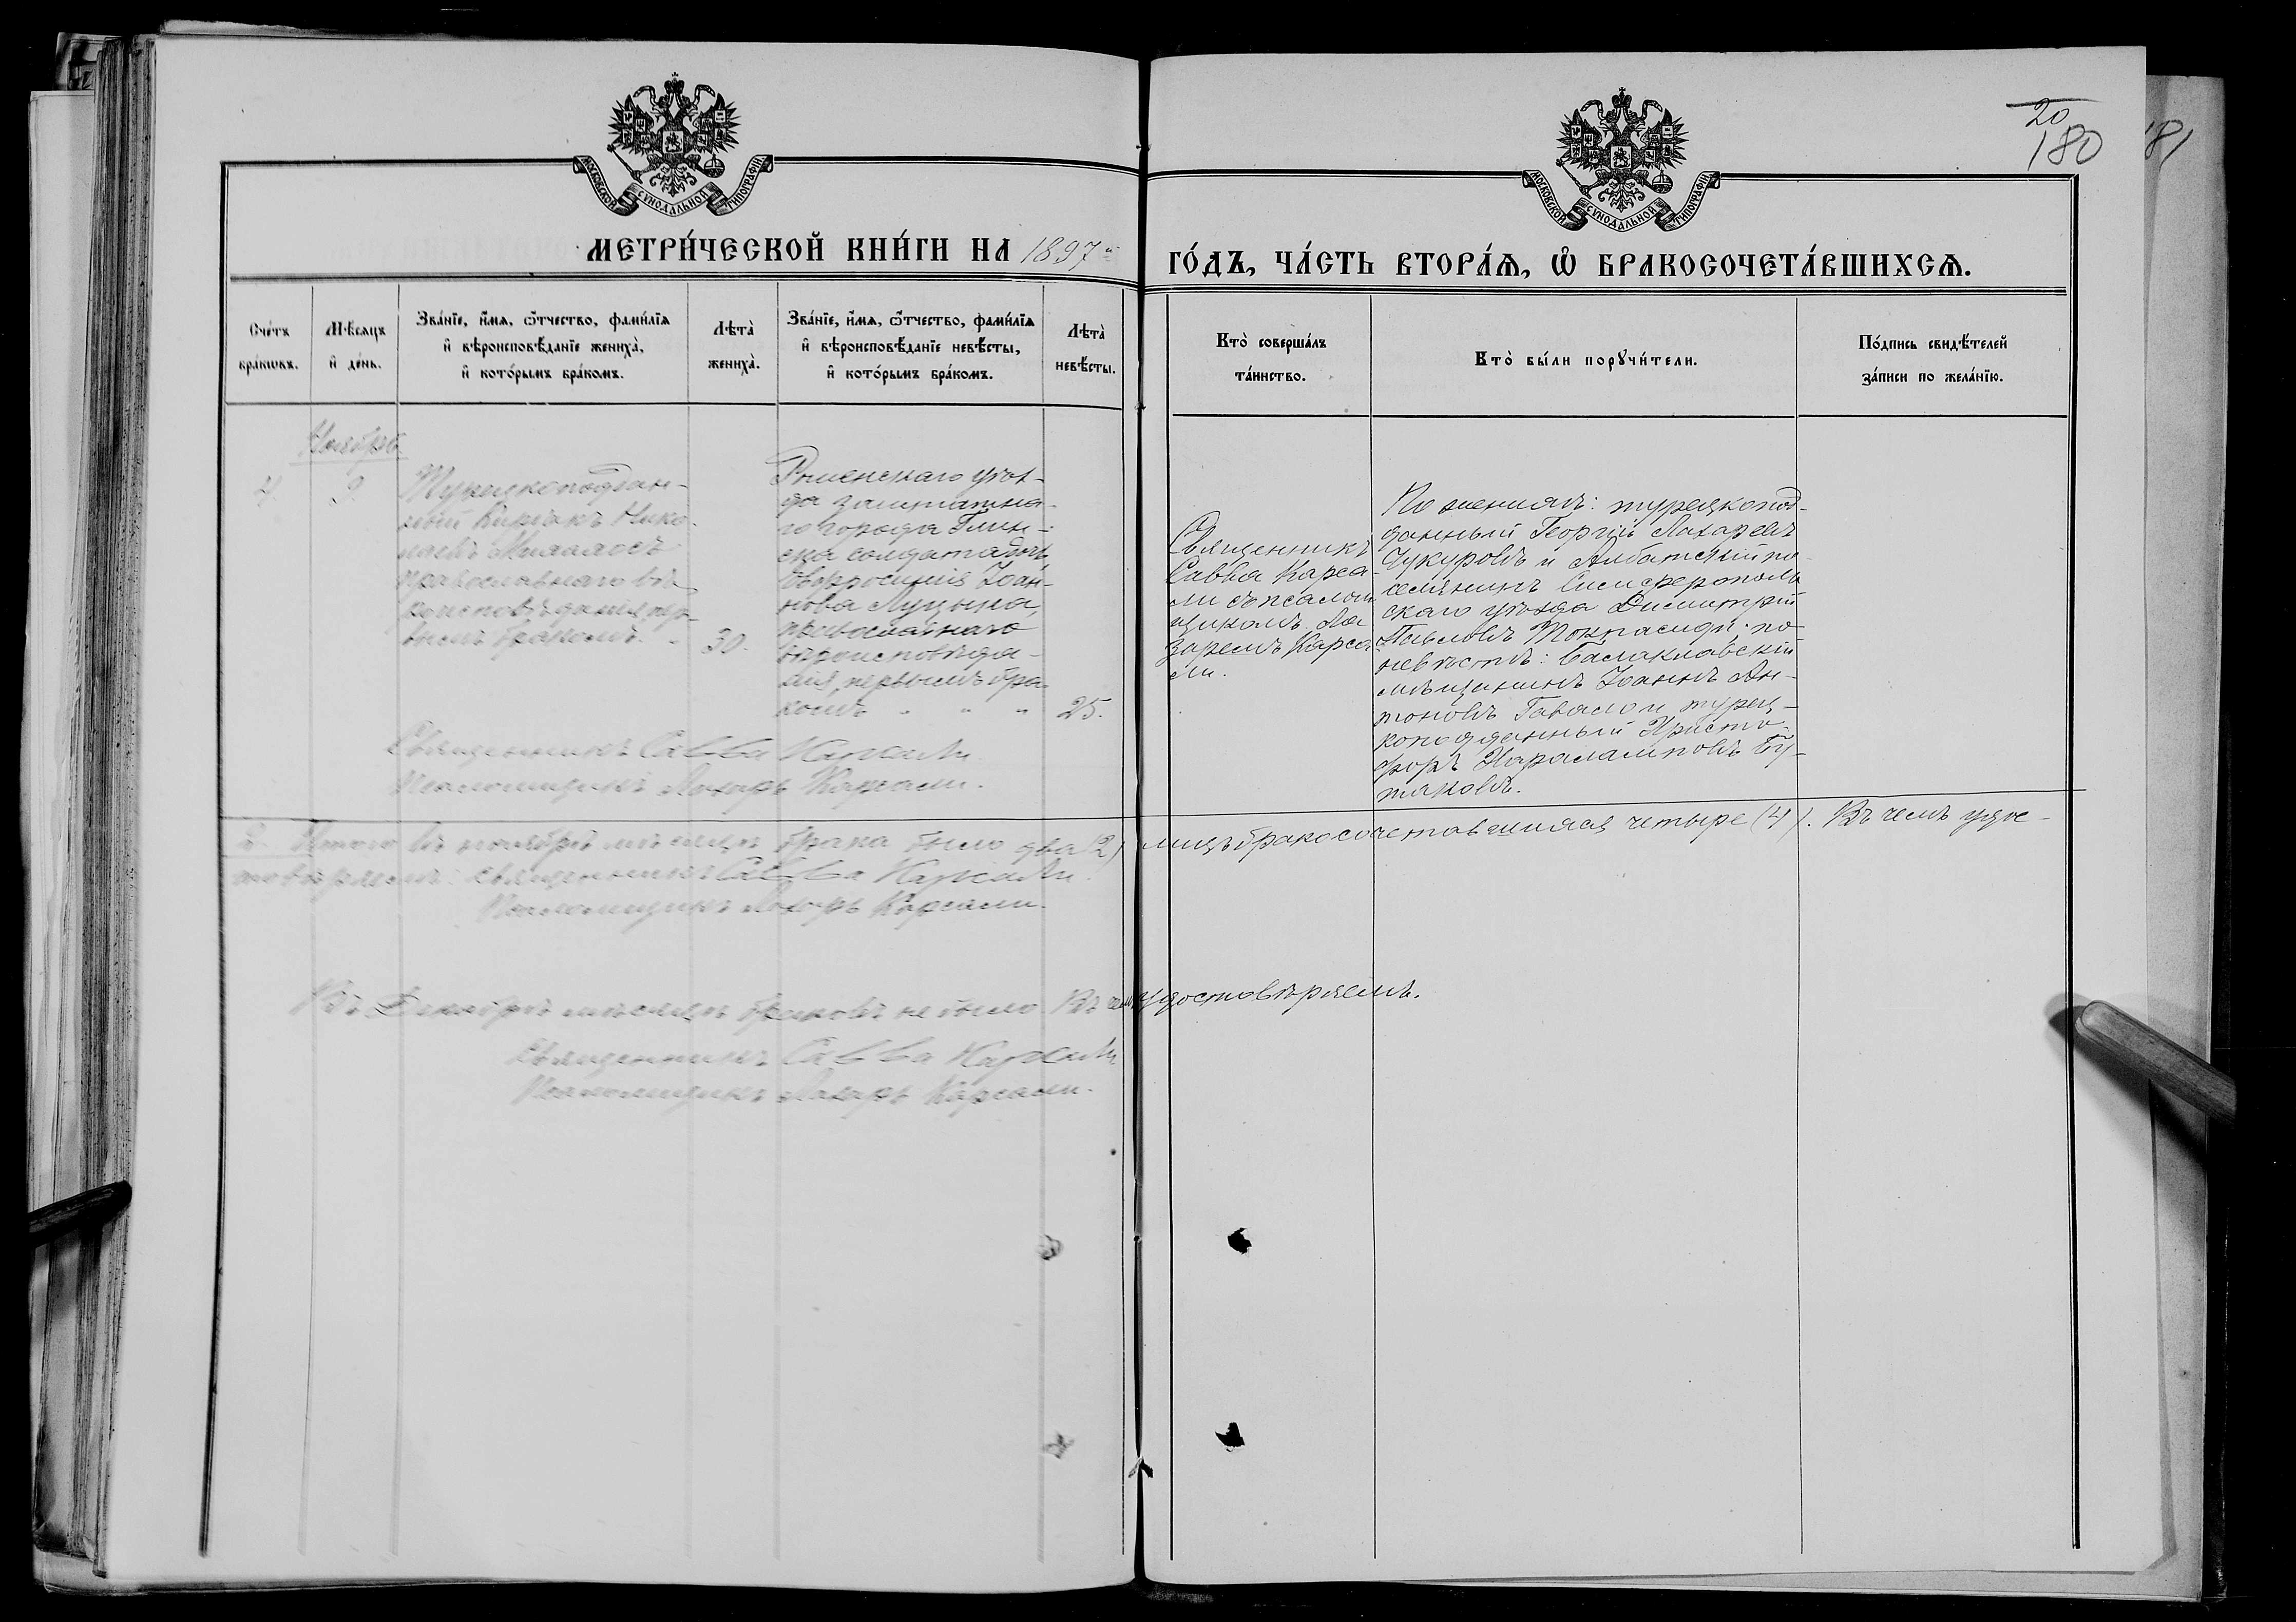 20
180
181
МОСКОВСКОЙ СѴНОДАЛЬНОЙ ТИПОГРАФІИ
МОСКОВСКОЙ СѴНОДАЛЬНОЙ ТИПОГРАФІИ
МЕТРИ́ЧЕСКОЙ КНИ́ГИ НА 1897й
ГО́ДЪ, ЧА́СТЬ ВТОРА́Ѧ, Ѽ БРАКОСОЧЕТА́ВШИХСѦ.
Сче́тъ
бра́ковъ.
Мѣ́сяцъ
и҆ де́нь.
Зва́нїе, и҆́мѧ, ѻ҆́тчество, фами́лїѧ
и҆ вѣроисповѣ́данїе жениха̀,
и҆ кото́рымъ бра́комъ.
Лѣта̀
жениха̀.
Зва́нїе, и҆́мѧ, ѻ҆́тчество, фами́лїѧ
и҆ вѣроисповѣ́данїе невѣ́сты,
и҆ кото́рымъ бра́комъ.
Лѣта̀
невѣ́сты.
Кто̀ соверша́лъ
та́инство.
Кто̀ бы́ли порꙋчи́тели.
По́дпись свидѣ́телей
за́писи по жела́нїю.
Ноябрь
4. 9
Турецкоподдан-
ный Кирьакъ Нико-
лаевъ
православнаго вѣ-
роисповѣданія пер-
вымъ бракомъ. "
30.
Роменскаго уѣз-
да заштатна-
го города Глин-
ска солдат. дочь
Евфросинія Іоан-
нова Луцына,
православнаго
вѣроисповѣда-
нія, первымъ бра-
комъ " " "
25.
Священникъ
Савва Карса-
ли съ псалом-
щикомъ Ла-
заремъ Карса-
ли.
По женихѣ: турецкопод-
данный Георгій Лазаревъ
Чукуровъ и Албатскій по-
селянинъ Симферополь-
скаго уѣзда Димитрій
Павловъ Токпасиди; по
невѣстѣ: Балаклавскій
мѣщанинъ Іоаннъ Ан-
тоновъ Гавало и турец-
коподданный Христо-
форъ Хараламповъ Бу-
таковъ.
Священникъ Савва Карсали
Псаломщикъ Лазарь Карсали.
2. Итого въ ноябрѣ мѣсяцѣ брака было два (2) лицъ бракосочетавшихся четыре (4). Въ чемъ удос-
товѣряемъ: Священникъ Савва Карсали.
Псаломщикъ Лазарь Карсали.
Въ Декабрѣ мѣсяцѣ браковъ не было. Въ чемъ удостовѣряемъ.
Священникъ Савва Карсали
Псаломщикъ Лазарь Карсали.